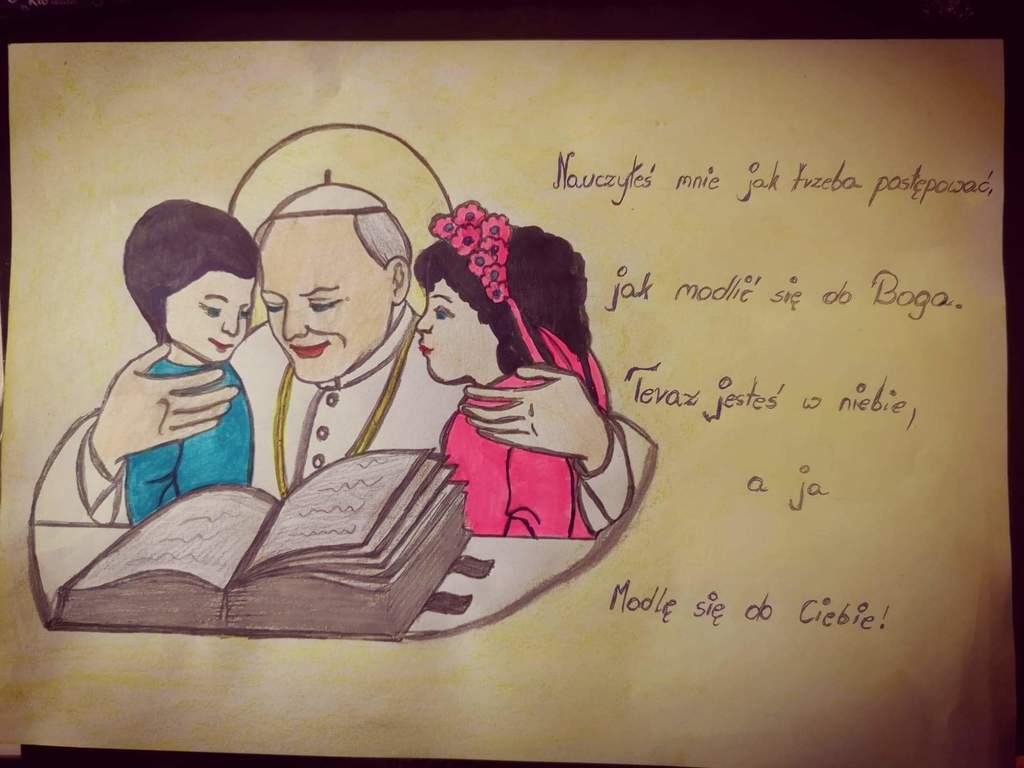 Nauczyłeś mnie jak trzeba postępować,
jak modlić się do Boga.
Teraz jesteś w niebie,
a ja
Modlę się do Ciebie!